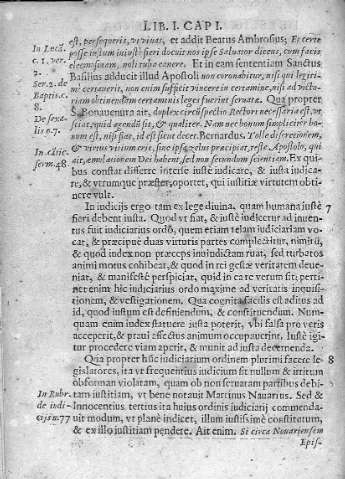 LIB. I. CAP I.
est, persequeris, vt vinas, et addit Beatus Ambrosius; Et certe
In Lucā. posse instum iniustè fieri docuit nos ipse Saluator dicens, cum facis
c. 1. ver. eleemosinam, noli tuba canere. Et in eam sententiam Sanctus
2. Basilius adducit illud Apostoli non coronabitur, nisi qui legiti-
Ser. 2. de mè certauerit, non enim sufficit vincere in certamine, nisi ad victo-
Baptis. c. riam obtinendam certaminis leges fuerint seruatæ. Quà propter
8. S. Bonauentura ait, duplex circunspectio Rectori necessaria est, vt
De sex a- sciat, quid agendū sit, & qualiter. Nam nec bonum simpliciter bo-
lis c. 7. num est, nisi fiat, id est sicut decet. Bernardus. Tolle discretionem,
In Cātic. & virtus vitium erit, sine ipsa zelus præcipitat, teste Apostolo, qui
serm. 48. ait, æmulationem Dei habent, sed non secundum scientiam. Ex qui-
bus constat differre interse iustè iudicare, & iusta iudica-
re, & vtrumque præstet, oportet, qui iustitiæ virtutem obti-
nere vult.
In iudicijs ergo tam ex lege diuina, quam humana iustè 7
fieri debent iusta. Quod vt fiat, & iustè iudicetur ad inuen-
tus fuit iudiciarius ordo, quem etiam telam iudiciariam vo-
cat, & præcipuè duas virtutis partes complectitur, nimirū,
& quod index non præceps in iudicium ruat, sed turbatos
animi motus cohibeat, & quod in rei gestæ veritatem deue-
niat, & manifestè perspiciat, quid in ea re verum sit, perti-
net enim hic iudiciarius ordo maxime ad veritatis inquisi-
tionem, & vestigationem. Qua cognita facilis est aditus ad
id, quod iustum est definiendum, & constituendum. Num-
quam enim index statuere iusta poterit, vbi falsa pro veris
acceperit, & praui effectus animum occupauerint. Iustè igi-
tur procedere viam aperit, & munit ad iusta decernenda.
Quà propter hūc iudiciarium ordinem plurimi facere le- 8
gislatores, ita vt frequentius iudicium sit nullum & irritum
obformam violatam, quam ob non seruatam partibus debi-
In Rubr. tam iustitiam, vt bene notauit Martinus Nauarrus. Sed &
de iudi- Innocentius tertius ita huius ordinis iudiciarij commenda-
cijs n. 77 uit modum, vt planè indicet, illum iustissimè constitutum,
& ex illo iustitiam pendere. Ait enim. Si circa Nouariensem
Epis-